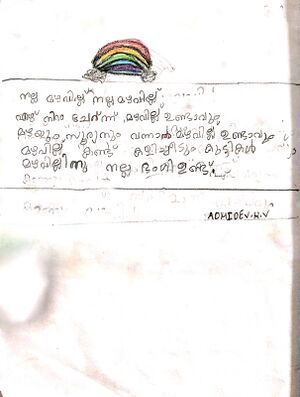 നല്ല മഴവില്ല് നല്ല മഴവില്ല്
ഏഴ് നിറം ചേർന്ന് മഴവില്ല് ഉണ്ടാവും
മഴയും സൂര്യനും വന്നാൽ മഴവില്ല് ഉണ്ടാവും
മഴവില്ല് കണ്ട് കളിച്ചീടും കുട്ടികൾ
മഴവില്ലിനു നല്ല ഭംഗി ഉണ്ട്.
ADHIDEV.K.V